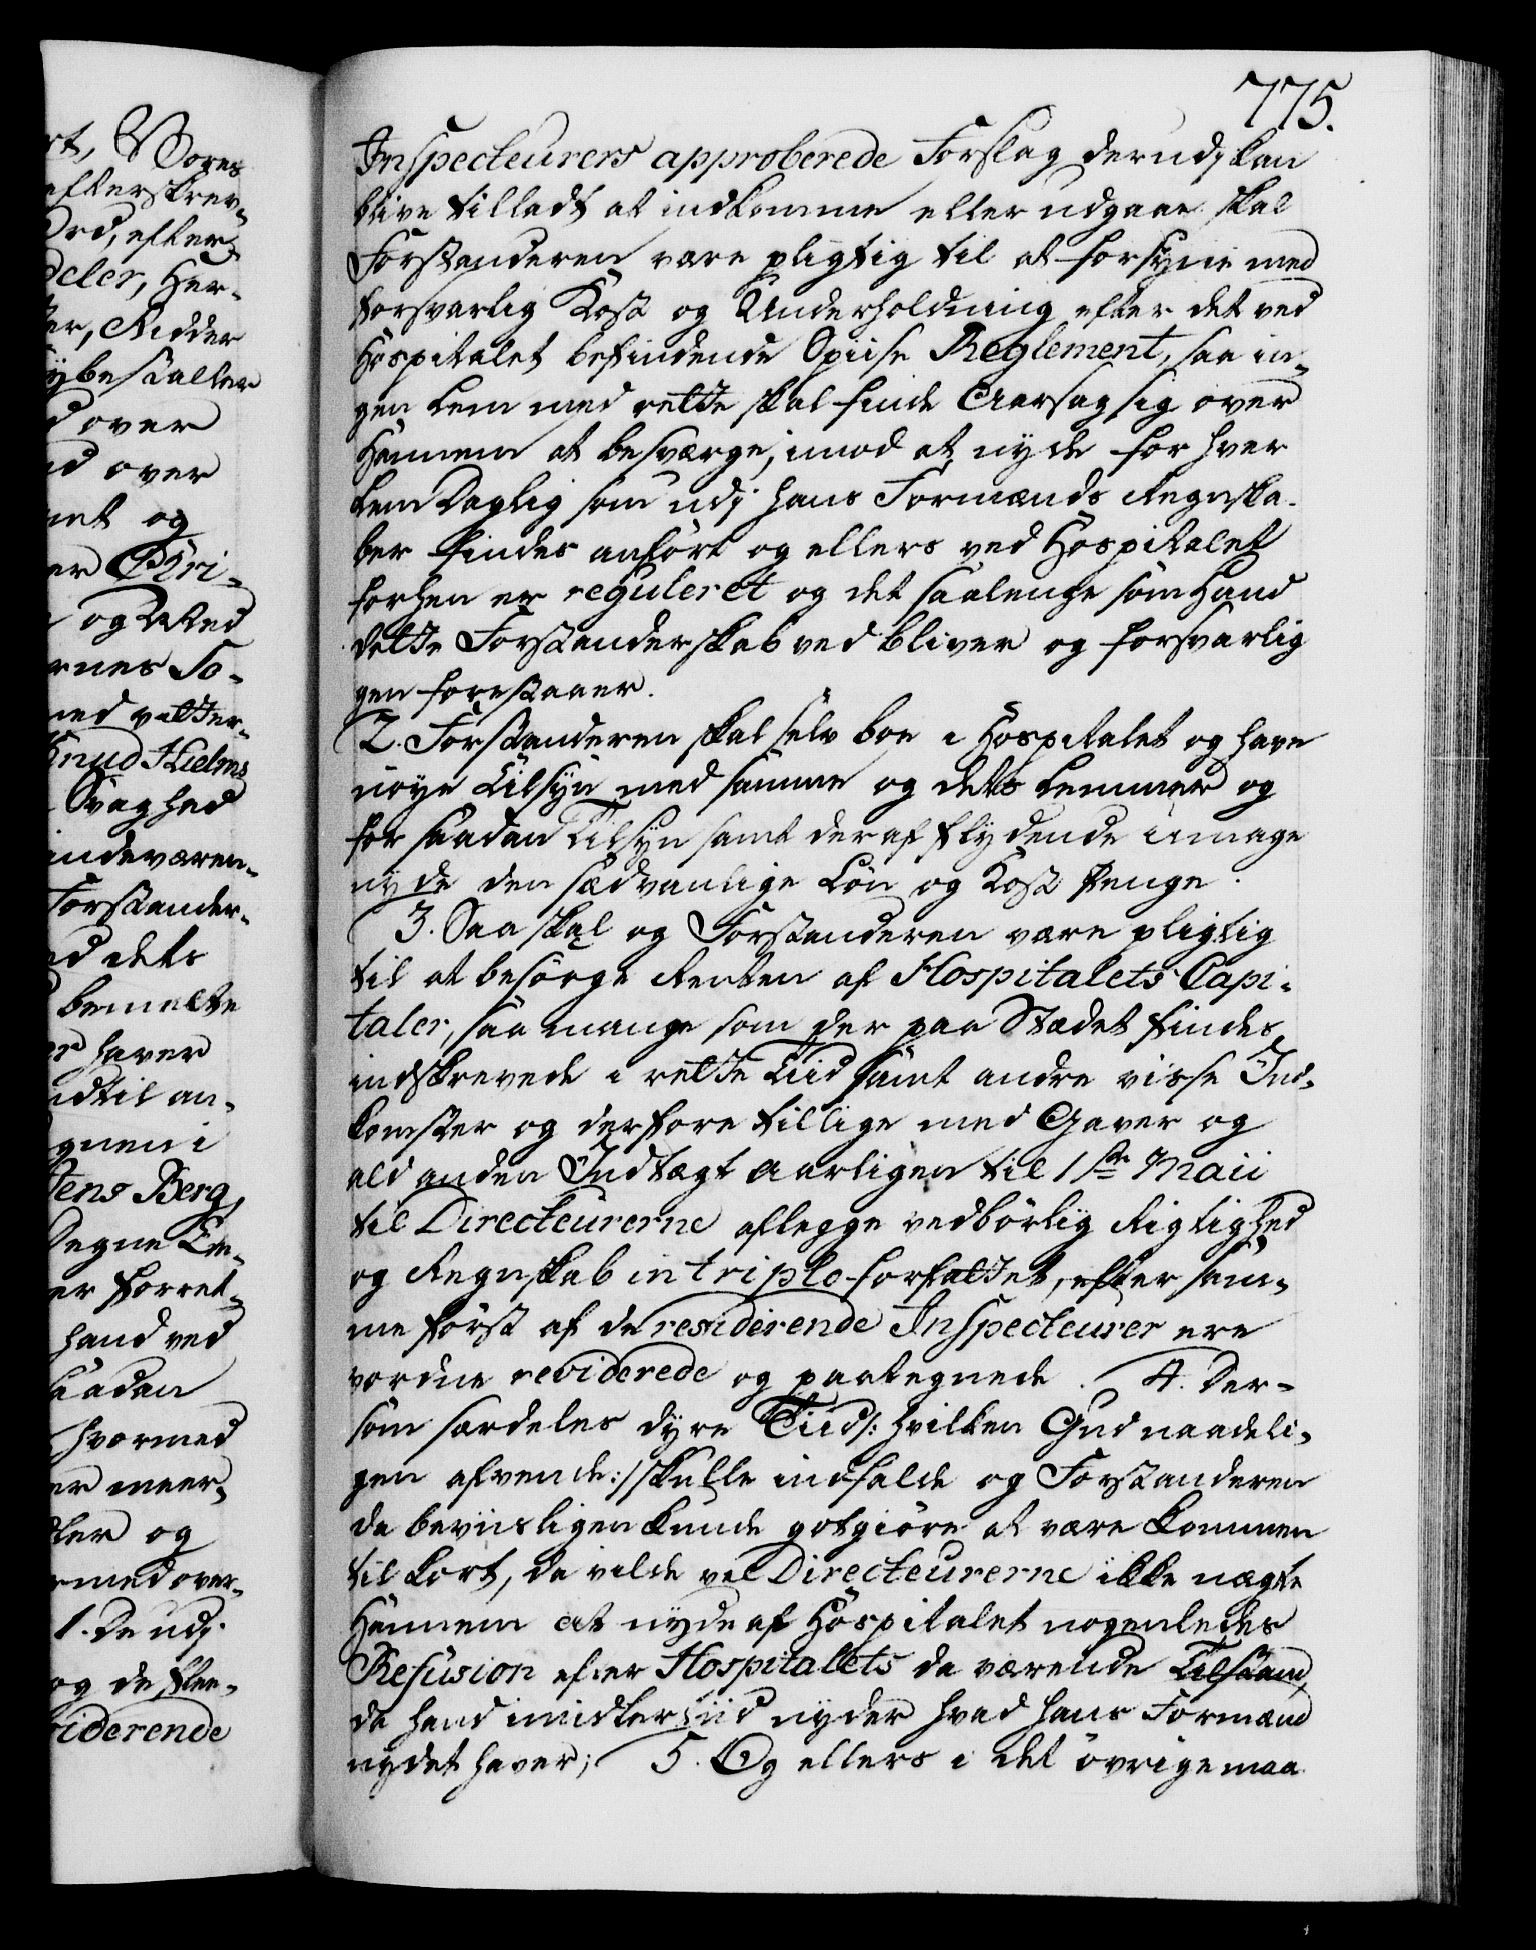 775.
Inspecteurers approberede Forslag derudj kan
blive tilladt at indkomme eller udgaae skal
Forstanderen være pligtig til at forsyne med
forsvarlig Kost og Underholdning efter det ved
Hospitalet befindende Spiise Reglement, saa in-
gen Lem med rette skal finde Aarsag sig over
Hannem at besværge, imod at nyde for hver
Lem Daglig som udj hans Formænds Regnska-
ber findes anført og ellers ved Hospitalet
forhen er reguleret og det saalenge som Hand
dette Forstanderskab ved bliver og forsvarlig
gen forestaaer.
2. Forstanderen skal selv boe i Hospitalet og have
nøye Tilsyn med samme og dets Lemmer og
for saadan Tilsyn samt deraf flydende umage
nyde den sædvanlige Løn og Kost Penge.
3. Saa skal og Forstanderen være pligtig
til at besørge Renten af Hospitalets Capi-
taler, saa mange som der paa Stædet findes
indskrevede i rette Tiid samt andre visse Ind-
komster og derfore tillige med Gaver og
ald anden Indtægt aarligen til 1ste Maii
til Directeurerne aflegge vedbørlig Rigtighed
og Regnskab in triplo forfattet, efter sam-
me først af de residerende Inspecteurer ere
vordne reviderede og paategnede. 4. Der-
som særdeles dyre Tiid /: hvilken Gud naadeli-
gen afvende :/ skulle indfalde og Forstanderen
da beviisligen kunde godtgiøre at være kommen
til kort, da vilde vel Directeurerne ikke nægte
Hannem at nyde af Hospitalet nogenledes
Refusion efter Hospitalets da værende Tilstand,
da hand imidlertiid nyder hvad hans Formand
nydet haver; 5. Og ellers i det øvrige maa